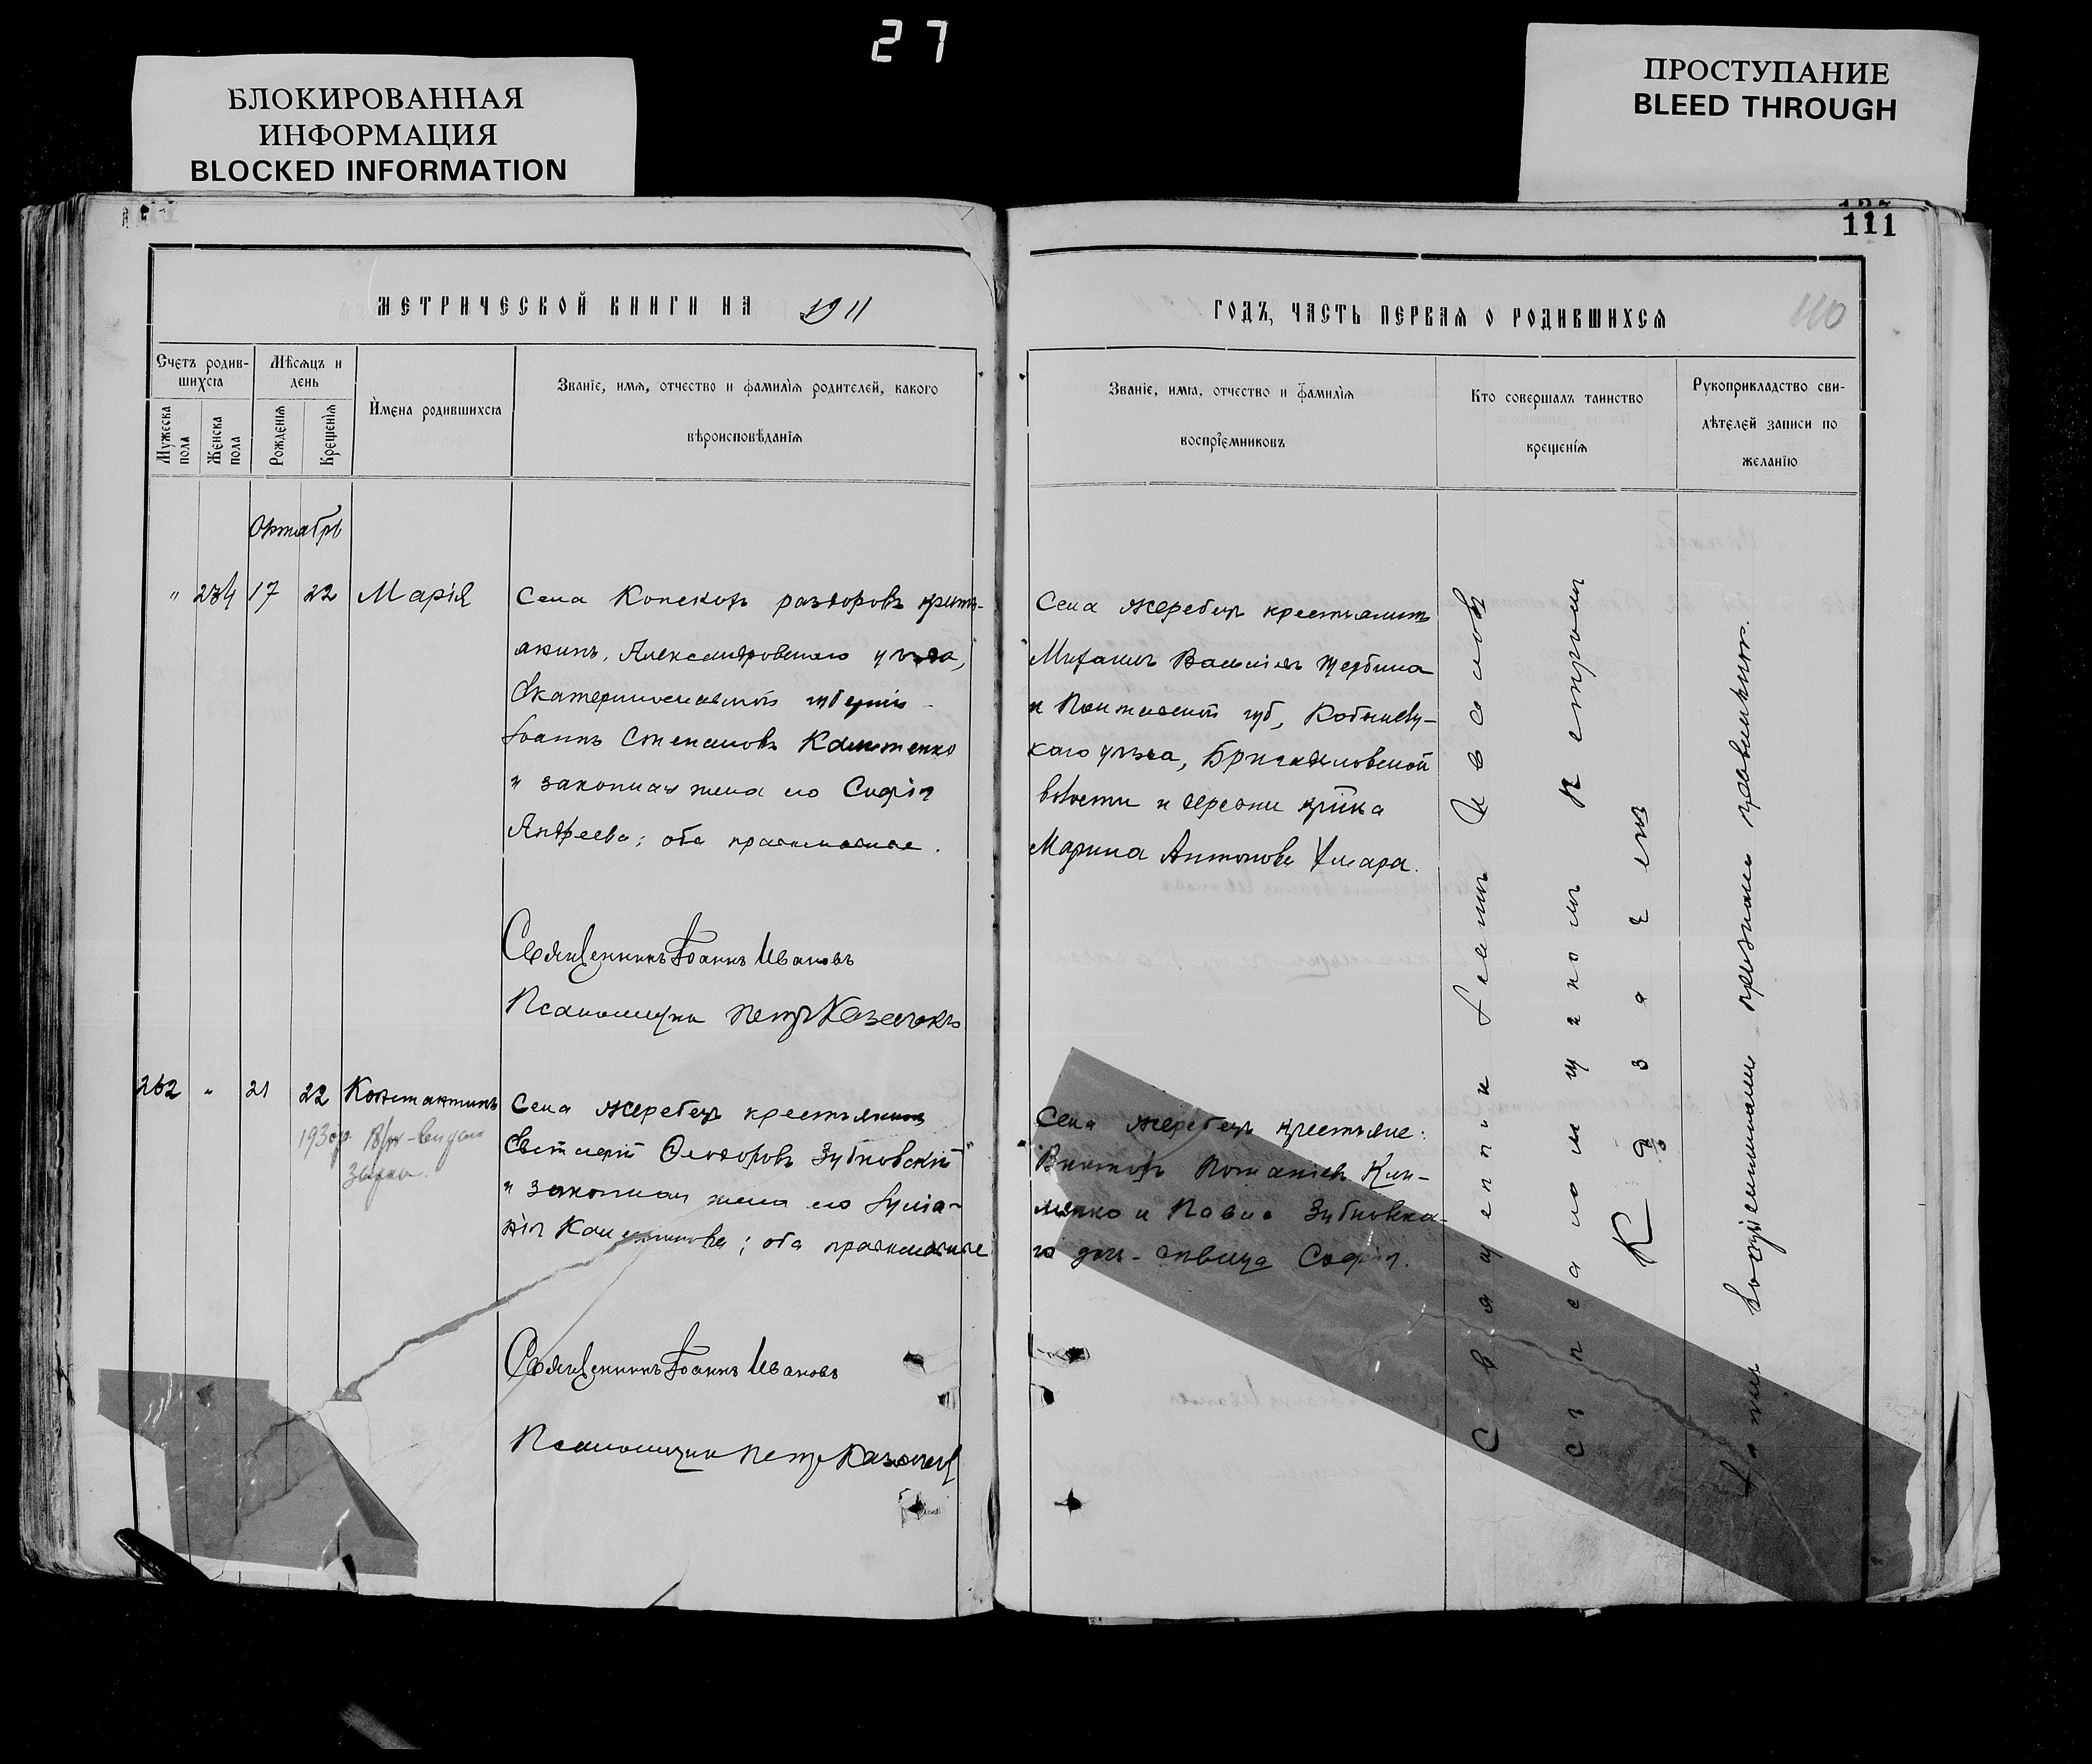 27
БЛОКИРОВАННАЯ
ИНФОРМАЦИЯ
BLOCKED INFORMATION
ПРОСТУПАНИЕ
BLEED THROUGH
111
МЕТРИЧЕСКОЙ КНИГИ НА 1911
ГОДЪ, ЧАСТЬ ПЕРВАЯ О РОДИВШИХСЯ
110
Счетъ родив-
шихся
Мѣсяцъ и
день
Мужеска
пола
Женска
пола
Рожденія
Крещенія
Имена родившихся
Званіе, имя, отчество и фамилія родителей, какого
вѣроисповѣданія
Званіе, имя, отчество и фамилія
воспріемниковъ
Кто совершалъ таинство
крещенія
Рукоприкладство сви-
дѣтелей записи по
желанію
Октябрь
" 234 17 22 Марія
Села Конскихъ раздоровъ крестъ-
янинъ, Александровскаго уѣзда,
Екатеринославской губерніи
Іоаннъ Стефановъ
и законная жена его Софія
Андреева; оба православные.
Священникъ Іоаннъ Ивановъ
Псаломщикъ Петръ Казачекъ
Села Жеребецъ крестьянинъ
Михаилъ Васильевъ Щербина
и Полтавской губ, Кобыляц-
каго уѣзда, Бригадировской
волости и деревни
Марина Антонова
262 " 21 22 Константинъ
1930 р.
Села Жеребецъ крестьянинъ
Евстафій Ѳеодоровъ Зубковскій
и законная жена его Іуліа-
нія; оба православные
Священникъ Іоаннъ Ивановъ
Псаломщикъ Петръ Казачекъ
Села Жеребецъ крестьяне:
Викторъ Романіевъ Кли-
менко и Павла Зубковска-
го дочь-дѣвица Софія.
Священникъ Іоаннъ Ивановъ
съ псаломщикомъ Петромъ
Казачекъ
воспріемниками